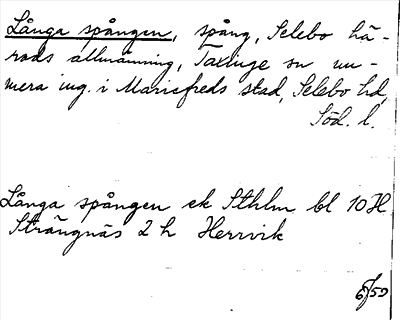 Långa spången, spång, Selebo hä-
rads allmänning, Taxinge sn nu-
mera ing. i Mariefreds stad, Selebo hd,
Söd. l.
Långa spången ek Sthlm bl 10 H
Strängnäs 2 h Herrvik
6/59